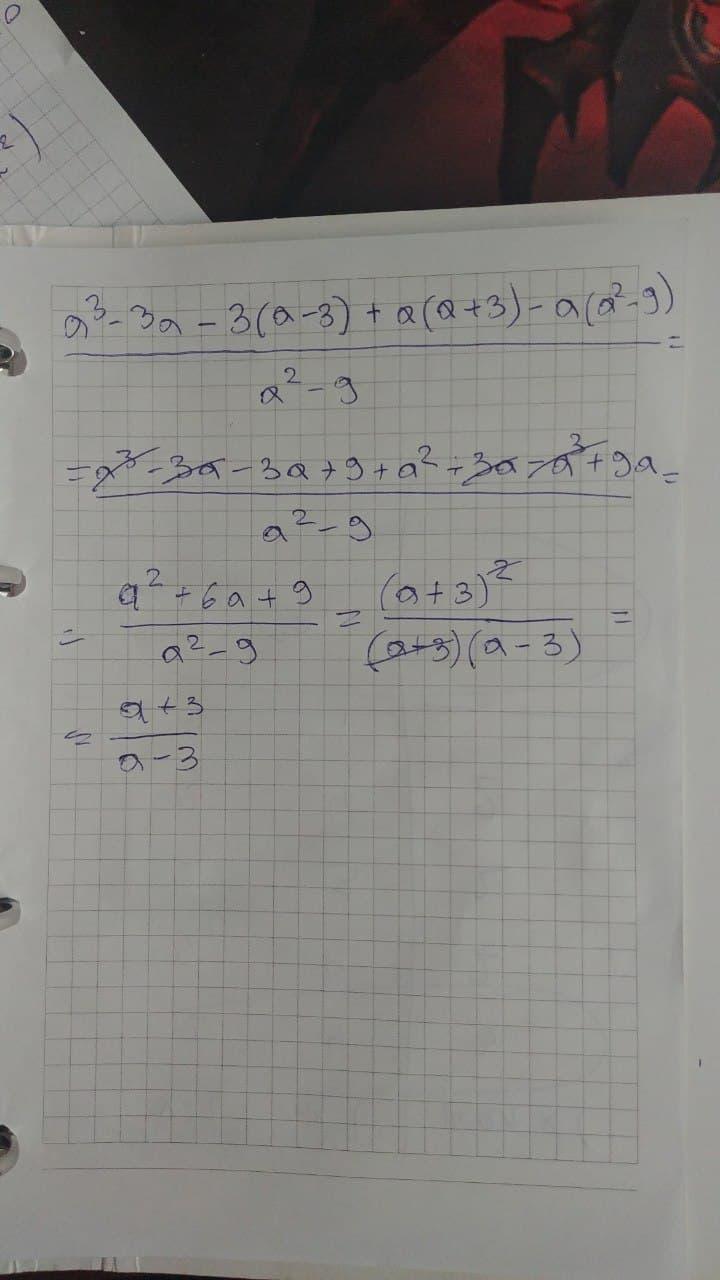 a³ - 3a - 3(a-3) + a(a+3) - a(a²-9)
a² - 9 =
= a³ - 3a - 3a + 9 + a² + 3a - a³ + 9a =
a² - 9
= a² + 6a + 9 / a² - 9 = (a+3)² / (a+3)(a-3) =
= a+3 / a-3